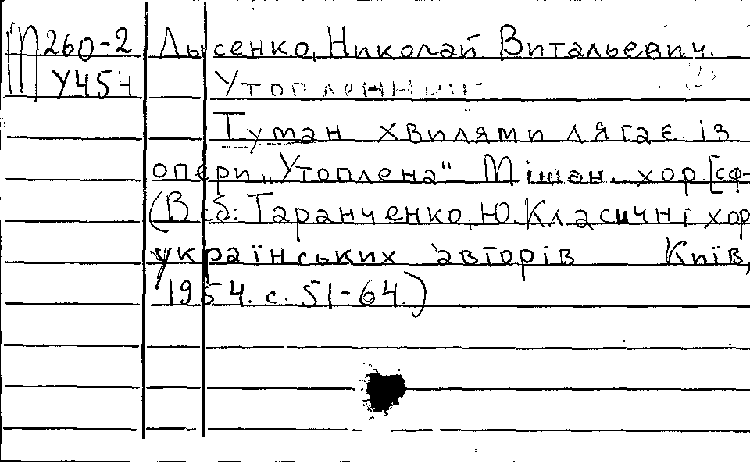 М260-2 Лысенко, Николай Витальевич.
У454 Утопленник
Туман хвилями лягає із
опери „Утоплена" Мішан. хор [сф-
(В сб: Таранченко, Ю. Класичні хор
українських авторів Київ,
1954. с. 51-64.)